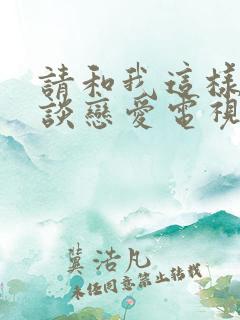 請和我這樣
談戀愛電視
冀浩凡
未經同意禁止轉載